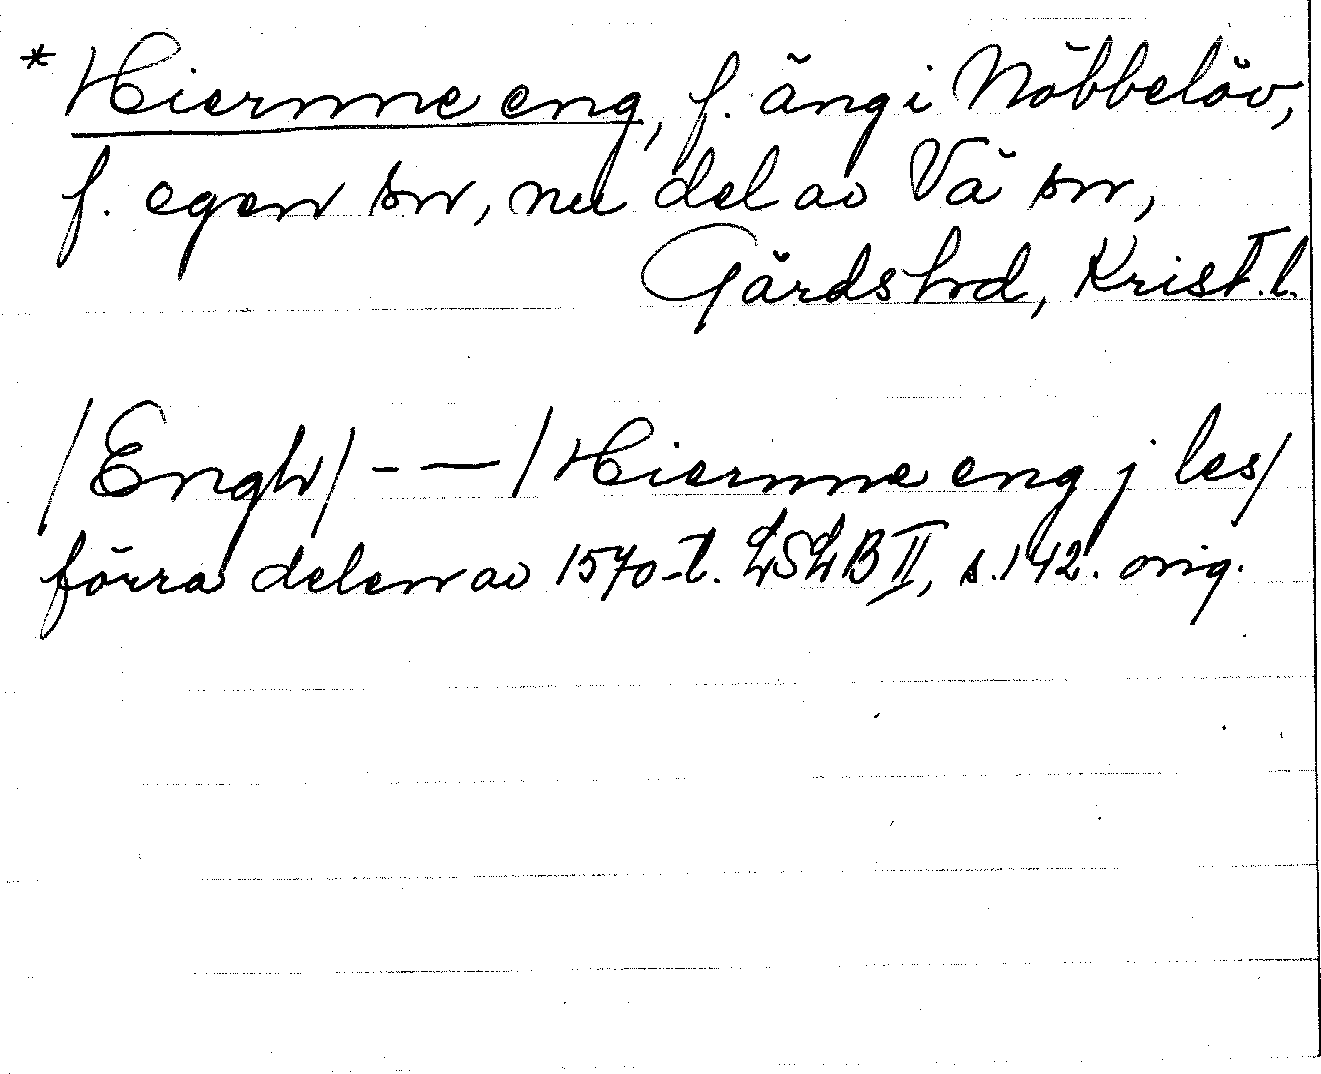 * Hiernne eng, f. äng i Nöbbelöv,
f. egen sn, nu del av Vä sn,
Gärds hd, Krist. l.
/Engh/ - — /Hiernne eng j les/
förra delen av 1570-t. LSLB II, s. 142. orig.